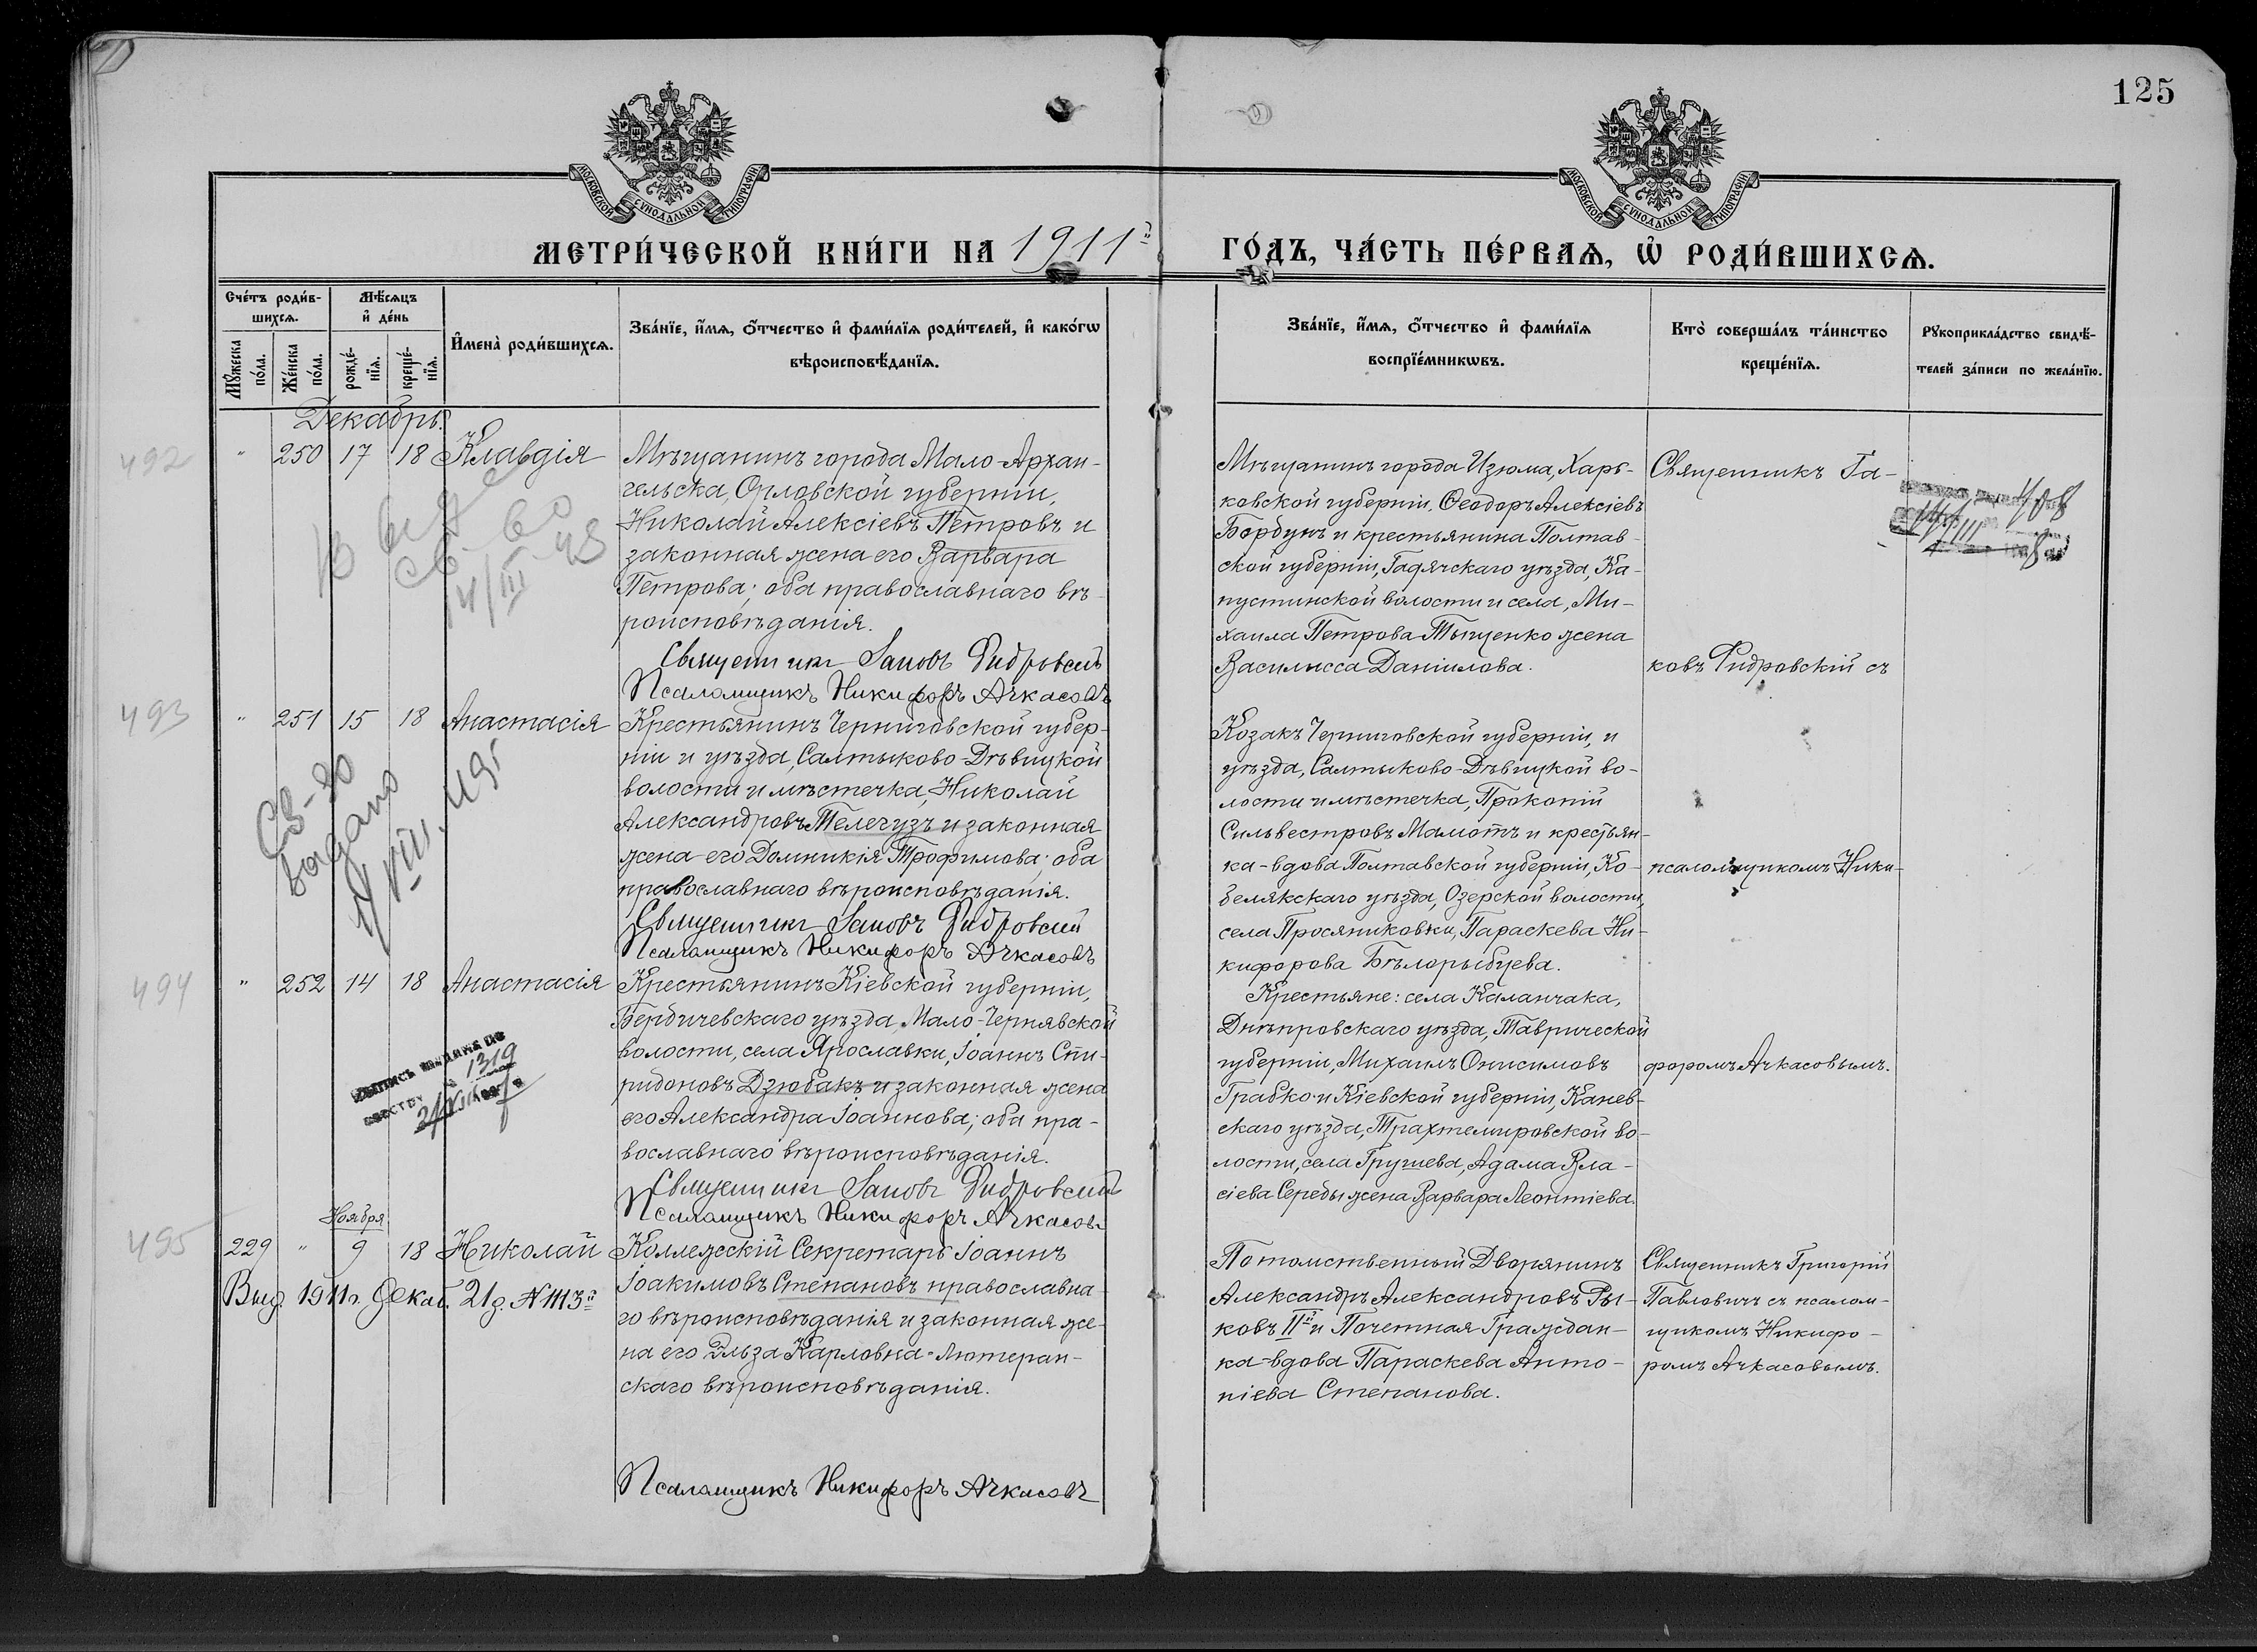 125
МОСКОВСКОЙ СѴНОДАЛЬНОЙ ТИПОГРАФІИ
МОСКОВСКОЙ СѴНОДАЛЬНОЙ ТИПОГРАФІИ
МЕТРИ́ЧЕСКОЙ КНИ́ГИ НА 1911й
ГО́ДЪ, ЧА́СТЬ ПЕ́РВАѦ, Ѡ҆ РОДИ́ВШИХСѦ.
Сче́тъ роди́в-
шихсѧ.
Мѣ́сѧцъ
и҆ де́нь
Мꙋ́жеска
по́ла.
Же́нска
по́ла.
рожде́-
нїѧ.
креще́-
нїѧ.
И҆мена̀ роди́вшихсѧ.
Зва́нїе, и҆́мѧ, ѻ҆́тчество и҆ фами́лїѧ роди́телей, и҆ како́гѡ
вѣроисповѣ́данїѧ.
Зва́нїе, и҆́мѧ, ѻ҆́тчество и҆ фами́лїѧ
воспрїе́мникѡвъ.
Кто̀ соверша́лъ та́инство
креще́нїѧ.
Рꙋкоприкла́дство свидѣ́-
телей за́писи по жела́нїю.
Декабрь.
492
" 250 17 18 Клавдія
Мѣщанинъ города Мало-Архан-
гельска, Орловской губерніи,
Николай Алексіевъ Петровъ и
законная жена его Варвара
Петрова; оба православнаго вѣ-
роисповѣданія.
Священникъ Іаковъ Гидровскій
Псаломщикъ Никифоръ Ачкасовъ
св-во
14/III 48
Мѣщанинъ города Изюма, Харь-
ковской губерніи, Ѳеодоръ Алексіевъ
Бордунъ и крестьянина Полтав-
ской губерніи, Гадячскаго уѣзда, Ка-
пустинской волости и села, Ми-
хаила Петрова Тыщенко жена
Василисса Даніилова.
Священникъ Іа-
ковъ Гидровскій съ
493
" 251 15 18 Анастасія
Крестьянинъ Черниговской губер-
ніи и уѣзда, Салтыково-Дѣвицкой
волости и мѣстечка, Николай
Александровъ Телегузъ и законная
жена его Домникія Трофимова; оба
православнаго вѣроисповѣданія.
Священникъ Іаковъ Гидровскій
Псаломщикъ Никифоръ Ачкасовъ
Св-во
выдано
Козакъ Черниговской губерніи, и
уѣзда, Салтыково-Дѣвицкой во-
лости и мѣстечка, Прокопій
Сильвестровъ Мамотъ и крестьян-
ка-вдова Полтавской губерніи, Ко-
белякскаго уѣзда, Озерской волости,
села Просяниковки, Параскева Ни-
кифорова Бѣлорыбцева.
псаломщикомъ Ники-
494
" 252 14 18 Анастасія
Крестьянинъ Кіевской губерніи,
Бердичевскаго уѣзда, Мало-Чернявской
волости, села Ярославки, Іоаннъ Спи-
ридоновъ Дзюбакъ и законная жена
его Александра Іоаннова; оба пра-
вославнаго вѣроисповѣданія.
Священникъ Іаковъ Гидровскій
Псаломщикъ Никифоръ Ачкасовъ
1319
Крестьяне: села Каланчака,
Днѣпровскаго уѣзда, Таврической
губерніи, Михаилъ Онисимовъ
Грабко и Кіевской губерніи, Канев-
скаго уѣзда, Трахтемировской во-
лости, села Грушева, Адама Вла-
сіева Середы жена Варвара Леонтіева.
форомъ Ачкасовымъ.
Ноября
495
229 " 9 18 Николай
Выд. 1911г. Декаб. 21д. №1113й
Коллежскій Секретарь Іоаннъ
Іоакимовъ Степановъ православна-
го вѣроисповѣданія и законная же-
на его Эльза Карловна-лютеран-
скаго вѣроисповѣданія.
Псаломщикъ Никифоръ Ачкасовъ
Потомственный Дворянинъ
Александръ Александровъ Ры-
ковъ IIй и Почетная Граждан-
ка-вдова Параскева Анто-
ніева Степанова.
Священникъ Григорій
Павловичъ съ псалом-
щикомъ Никифо-
ромъ Ачкасовымъ.